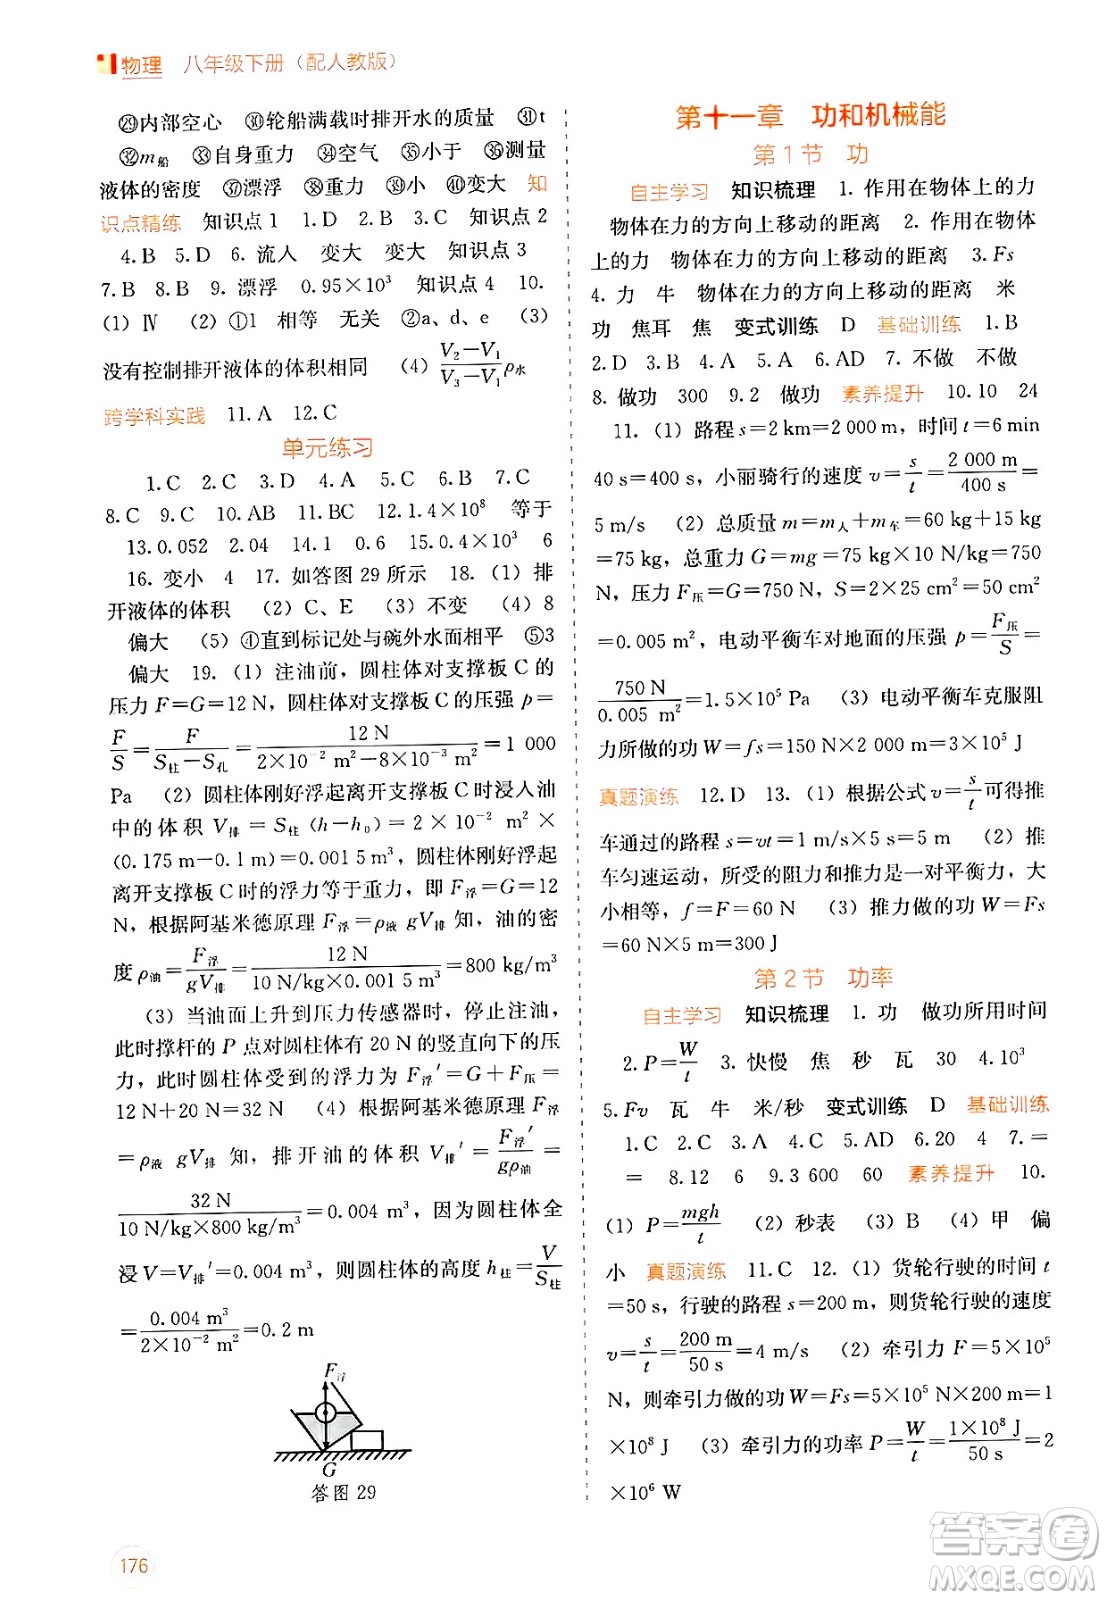 物理 八年级下册（配人教版）
㉙内部空心 ㉚轮船满载时排开水的质量 ㉛t
㉜m船 ㉝自身重力 ㉞空气 ㉟小于 ㊱测量
液体的密度 ㊲漂浮 ㊳重力 ㊴小 ㊵变大 知
识点精练 知识点1 1.D 2.B 3.C 知识点2
4.B 5.D 6.流入 变大 变大 知识点3
7.B 8.B 9.漂浮 0.95×10³ 知识点4 10.
(1)Ⅳ (2)①1 相等 无关 ②a、d、e (3)
没有控制排开液体的体积相同 (4)(V₂−V₁)/(V₃−V₁)ρ水
跨学科实践 11.A 12.C
单元练习
1.C 2.C 3.D 4.A 5.C 6.B 7.C
8.C 9.C 10.AB 11.BC 12.1.4×10⁸ 等于
13.0.052 2.04 14.1 0.6 15.0.4×10³ 6
16.变小 4 17.如答图29所示 18.(1)排
开液体的体积 (2)C、E (3)不变 (4)8
偏大 (5)④直到标记处与碗外水面相平 ⑤3
偏大 19.(1)注油前，圆柱体对支撑板C的
压力F=G=12 N，圆柱体对支撑板C的压强p=
F/S=F/(S柱−S孔)=12 N/(2×10⁻² m²−8×10⁻³ m²)=1 000
Pa (2)圆柱体刚好浮起离开支撑板C时浸入油
中的体积V排=S柱(h−h₀)=2×10⁻² m²×
(0.175 m−0.1 m)=0.001 5 m³，圆柱体刚好浮起
离开支撑板C时的浮力等于重力，即F浮=G=12
N，根据阿基米德原理F浮=ρ液gV排知，油的密
度ρ油=F浮/(gV排)=12 N/(10 N/kg×0.001 5 m³)=800 kg/m³
(3)当油面上升到压力传感器时，停止注油，
此时撑杆的P点对圆柱体有20 N的竖直向下的压
力，此时圆柱体受到的浮力为F浮′=G+F压=
12 N+20 N=32 N (4)根据阿基米德原理F浮
=ρ液gV排知，排开油的体积V排′=F浮′/(gρ油)=
32 N/(10 N/kg×800 kg/m³)=0.004 m³，因为圆柱体全
浸V=V排′=0.004 m³，则圆柱体的高度h柱=V/S柱
=0.004 m³/(2×10⁻² m²)=0.2 m
F浮
G
答图29
176
第十一章 功和机械能
第1节 功
自主学习 知识梳理 1.作用在物体上的力
物体在力的方向上移动的距离 2.作用在物体
上的力 物体在力的方向上移动的距离 3.Fs
4.力 牛 物体在力的方向上移动的距离 米
功 焦耳 焦 变式训练 D 基础训练 1.B
2.D 3.B 4.A 5.A 6.AD 7.不做 不做
8.做功 300 9.2 做功 素养提升 10.10 24
11.(1)路程s=2 km=2 000 m，时间t=6 min
40 s=400 s，小丽骑行的速度v=s/t=2 000 m/400 s=
5 m/s (2)总质量m=m人+m车=60 kg+15 kg
=75 kg，总重力G=mg=75 kg×10 N/kg=750
N，压力F压=G=750 N，S=2×25 cm²=50 cm²
=0.005 m²，电动平衡车对地面的压强p=F压/S=
750 N/0.005 m²=1.5×10⁵ Pa (3)电动平衡车克服阻
力所做的功W=fs=150 N×2 000 m=3×10⁵ J
真题演练 12.D 13.(1)根据公式v=s/t可得推
车通过的路程s=vt=1 m/s×5 s=5 m (2)由于
车匀速运动，所受的阻力和推力是一对平衡力，大
小相等，f=F=60 N (3)推力做的功W=Fs
=60 N×5 m=300 J
第2节 功率
自主学习 知识梳理 1.功 做功所用时间
2.P=W/t 3.快慢 焦 秒 瓦 30 4.10³
5.Fv 瓦 牛 米/秒 变式训练 D 基础训练
1.C 2.C 3.A 4.C 5.AD 6.20 4 7.=
= 8.12 6 9.3 600 60 素养提升 10.
(1)P=mgh/t (2)秒表 (3)B (4)甲 偏
小 真题演练 11.C 12.(1)货轮行驶的时间t
=50 s，行驶的路程s=200 m，则货轮行驶的速度
v=s/t=200 m/50 s=4 m/s (2)牵引力F=5×10⁵
N，则牵引力做的功W=Fs=5×10⁵ N×200 m=1
×10⁸ J (3)牵引力的功率P=W/t=1×10⁸ J/50 s=2
×10⁶ W
答案圈
MXQE.COM